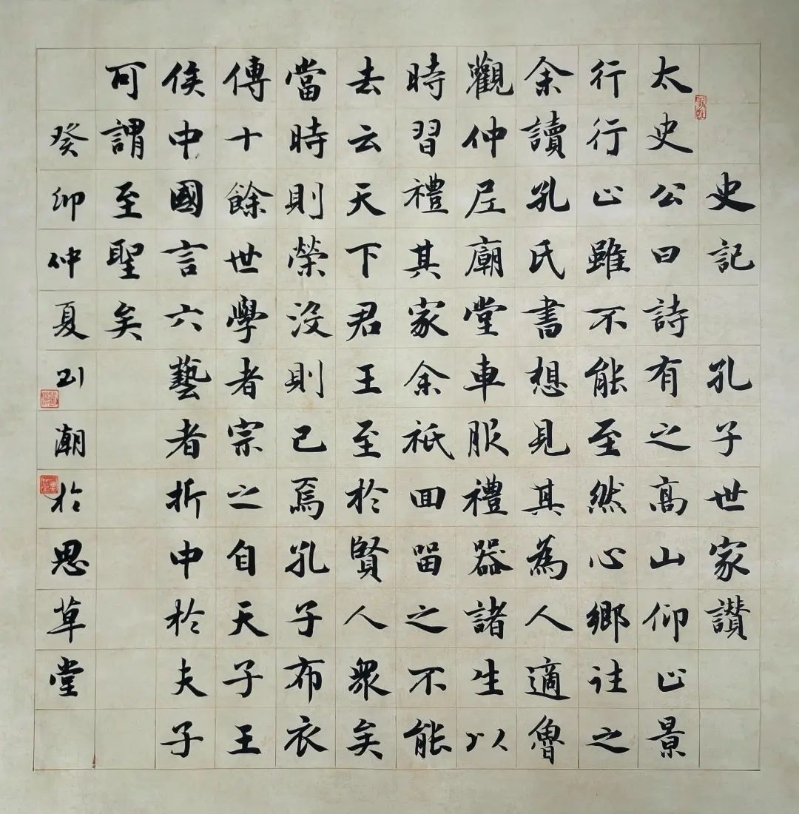 史記 孔子世家讚
太史公曰詩有之高山仰止景
行行止雖不能至然心鄉往之
余讀孔氏書想見其為人適魯
觀仲尼廟堂車服禮器諸生以
時習禮其家余祗回留之不能
去云天下君王至於賢人衆矣
當時則榮沒則已焉孔子布衣
傳十餘世學者宗之自天子王
侯中國言六藝者折中於夫子
可謂至聖矣
癸卯仲夏刘潮於思草堂